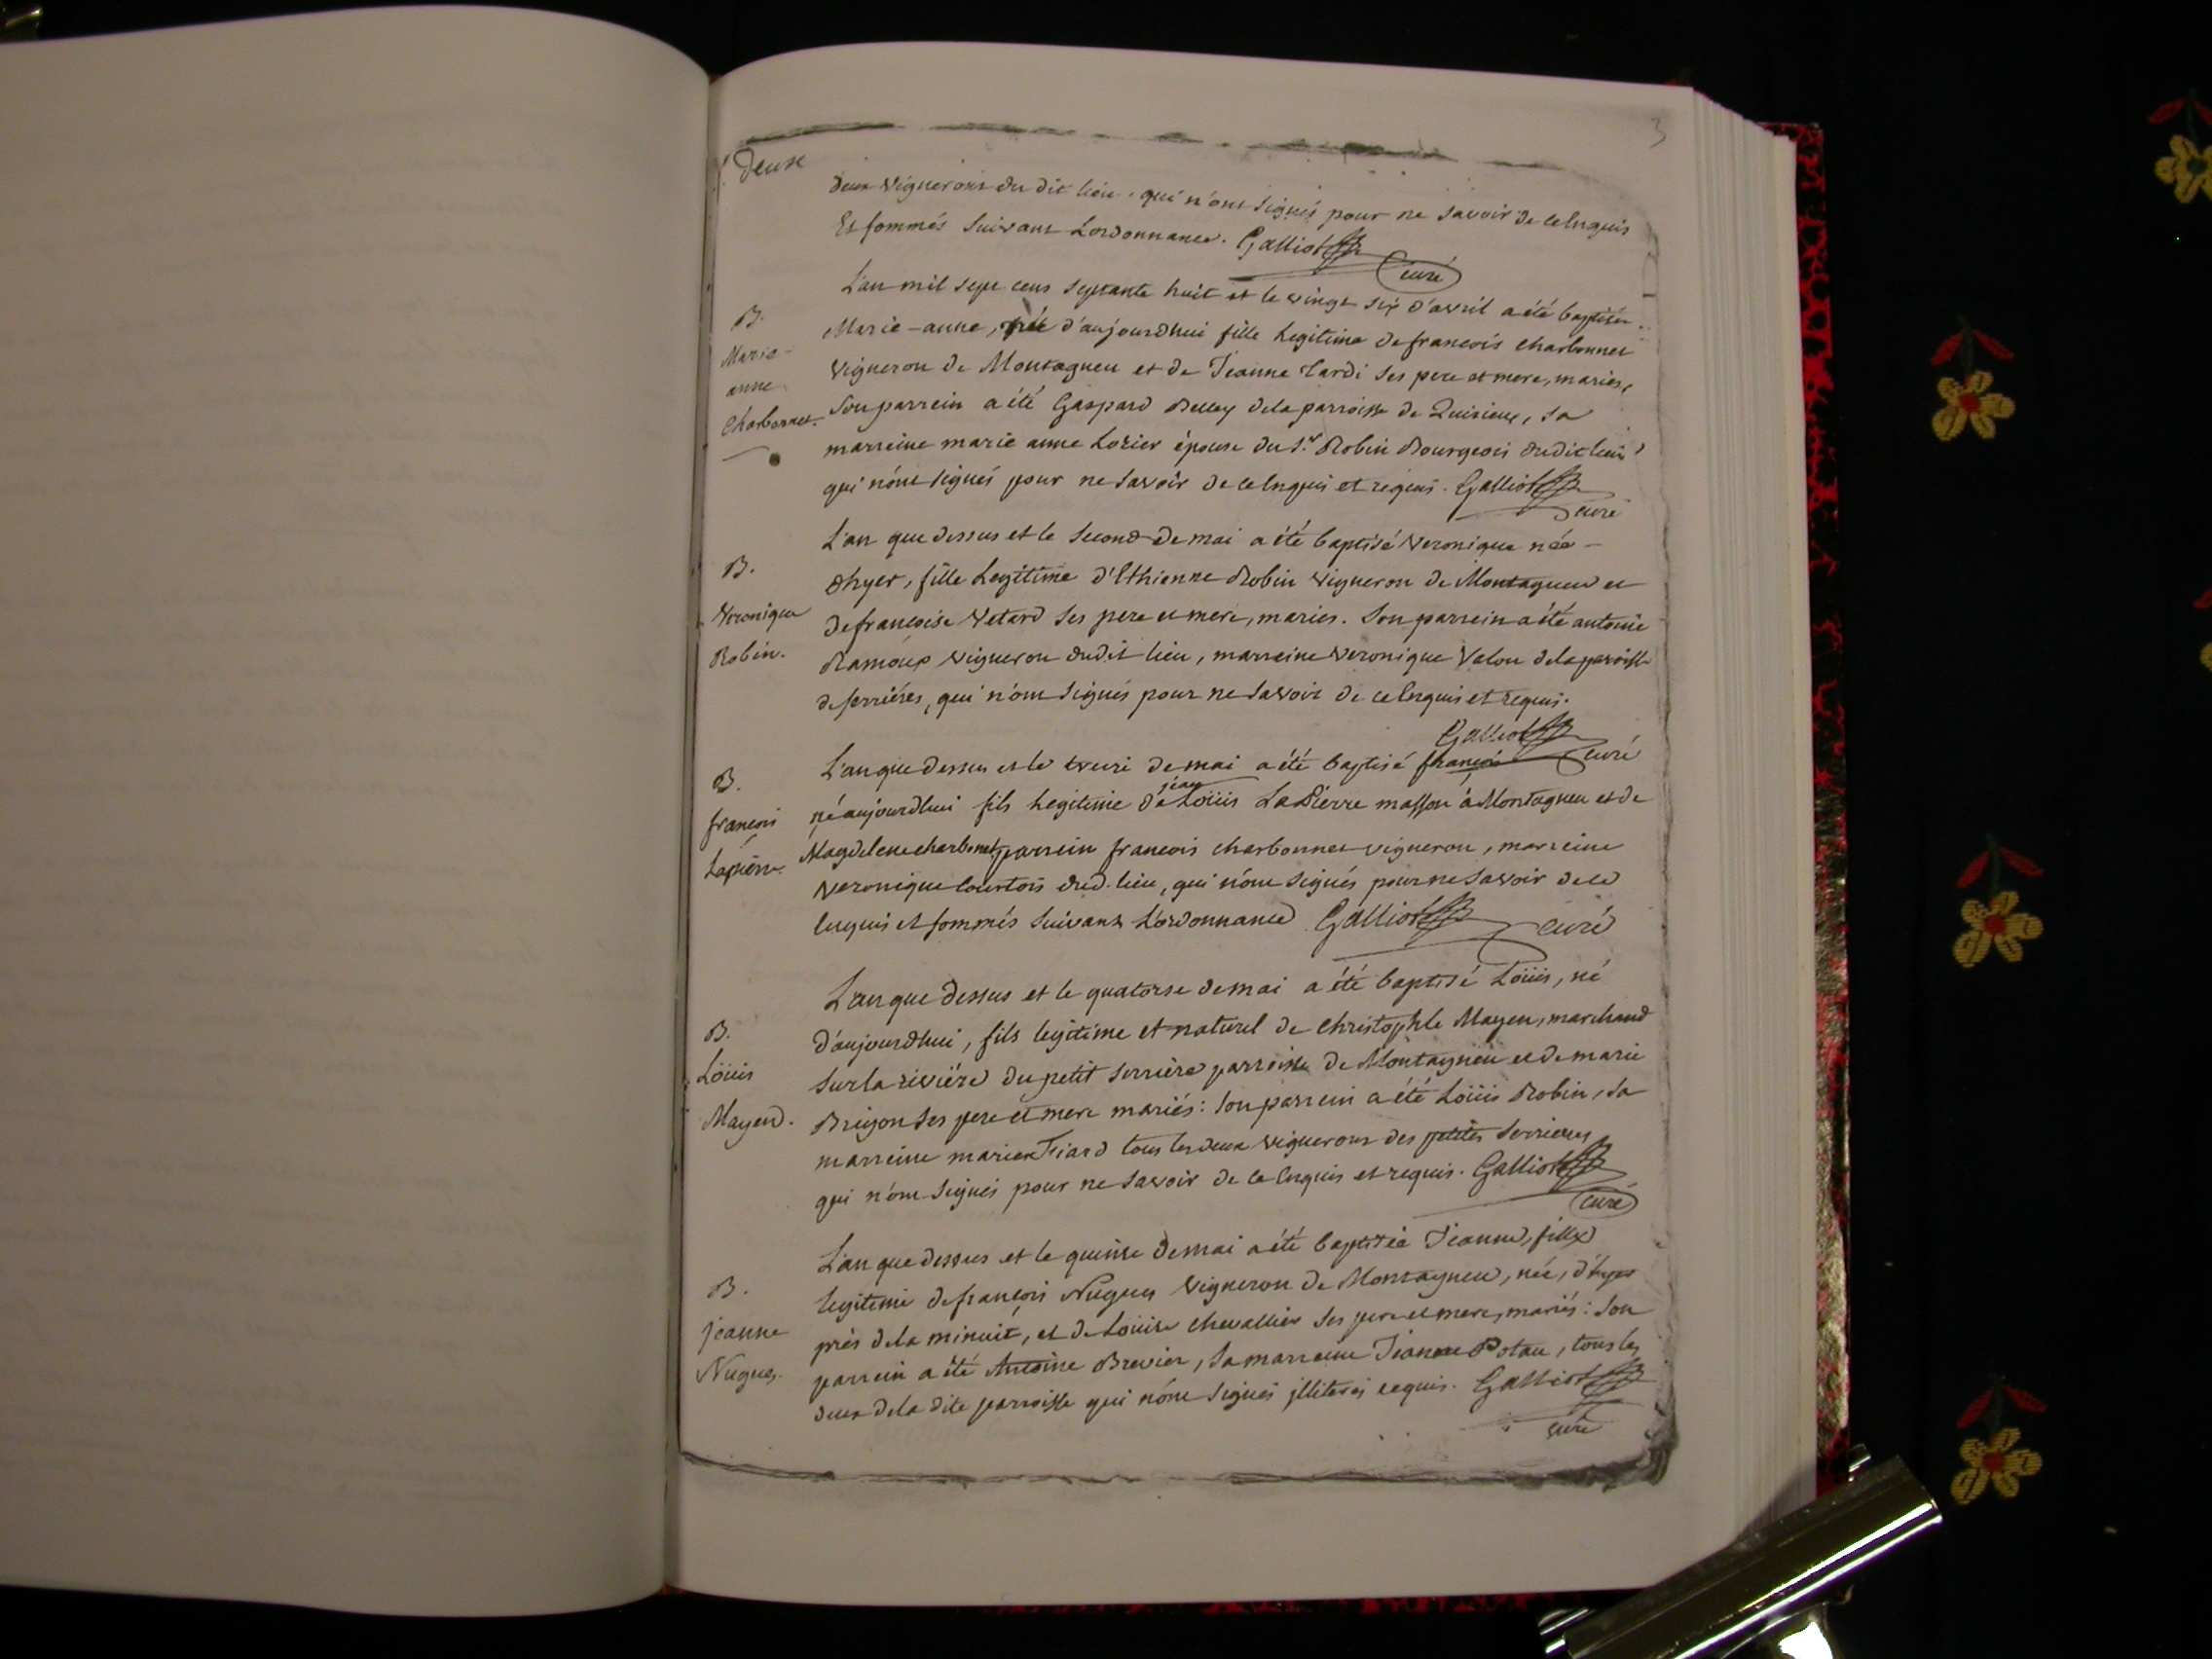 3
deuxe
deux vignerons du dit lieu, qui n'ont signés pour ne savoir de ce Enquis
Et sommés suivant Lordonnance. Galliot
curé
B.
Marie-
anne
Charbonnet.
L'an mil sept cens septante huit et le vingt six d'avril a été baptisée
Marie-anne, née d'aujourdhui fille Legitime de francois charbonnet
vigneron de Montagneu et de Jeanne Tardi ses pere et mere, maries,
Son parrein a été Gaspard Belley dela parroisse de Quirieux, sa
marreine marie anne Lozier épouse du Sr. Robin Bourgeois dudit lieu,
qui n'ont signés pour ne savoir de ce Enquis et requis. Galliot
curé
B.
Veronique
Robin.
L'an que dessus et le second de mai a été baptisé Veronique née
d'hyer, fille Legitime d'Ethienne Robin vigneron de Montagneu et
de francoise Vetard ses pere et mere, maries. Son parrein a été antoine
Ramoux vigneron dudit lieu, marreine Veronique Valou dela paroisse
de serriéres, qui n'ont signés pour ne savoir de ce Enquis et requis.
Galliot
curé
B.
françois
Lapierre.
L'an que dessus et le treise de mai a été baptisé françois
né aujourdhui fils Legitime de jean Loüis LaPierre masson à Montagneu et de
Magdelene charbonet, parrein francois charbonnet vigneron, marreine
veronique Courtois dud. lieu, qui n'ont signés pour ne savoir de ce
Enquis et sommés suivant L'ordonnance Galliot curé
B.
Loüis
Mayen.
L'an que dessus et le quatorse de mai a été baptisé Loüis, né
d'aujourdhui, fils legitime et naturel de christophle Mayen, marchand
sur la riviére du petit serriére parroisse de Montagneu et de marie
ses pere et mere mariés: son parrein a été Loüis Robin, sa
marreine marie Triard tous les deux vignerons des petites serrieres
qui n'ont signés pour ne savoir de ce Enquis et requis. Galliot
curé
B.
jeanne
Nugues.
L'an que dessus et le quinse de mai a été baptisée Jeanne, fille
legitime de françois Nugues vigneron de Montagneu, née, d'hyer
près dela minuit, et de Loüise chevallier ses pere et mere, mariés: son
parrein a été Antoine Brevier, sa marreine Jeanne Potau, tous les
deux dela dite parroisse qui n'ont signés jlliterés requis. Galliot
curé